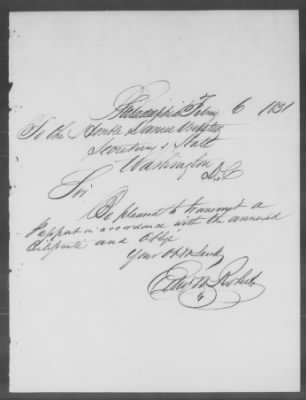 Philadelphia Febry 6 1851
To the Honble Daniel Webster
Secretary of State
Washington
D.C
Sir
Be pleased to transmit a
Passport in accordance with the annexed
Certificate and Oblige
Your Obt Servt
Edw